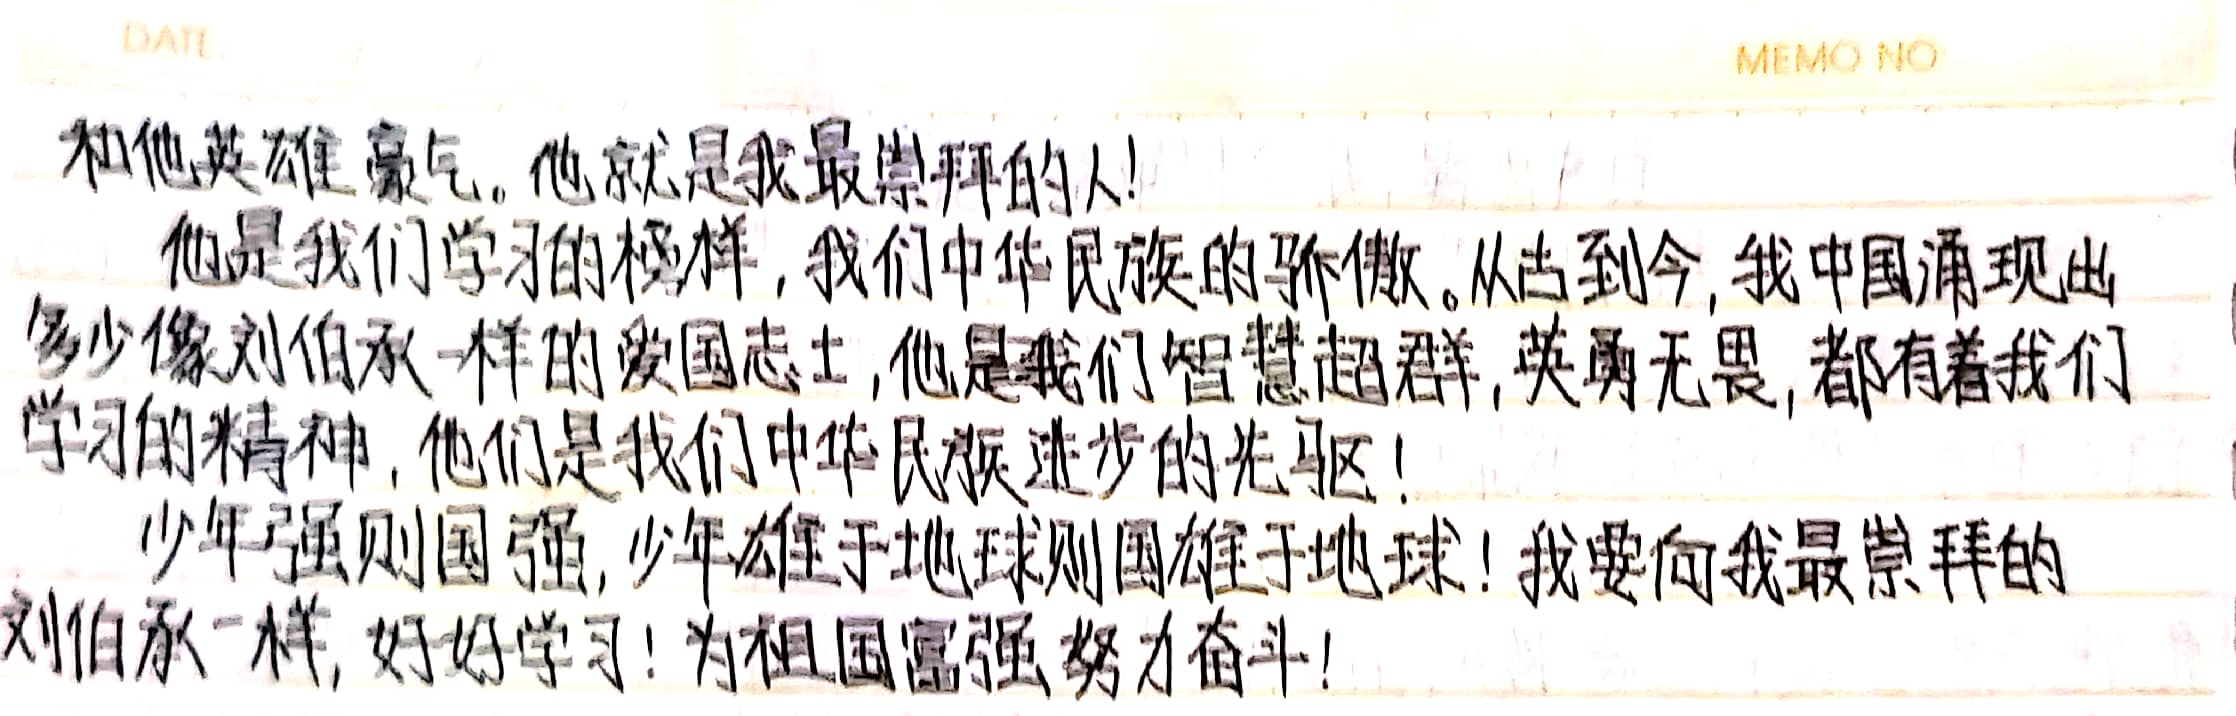 DATE
MEMO NO
和他英雄豪气。他就是我最崇拜的人!
他是我们学习的榜样,我们中华民族的骄傲。从古到今,我中国涌现出
多少像刘伯承一样的爱国志士,他是我们智慧超群,英勇无畏,都有着我们
学习的精神,他们是我们中华民族进步的先驱!
少年强则国强,少年雄于地球则国雄于地球!我要向我最崇拜的
刘伯承一样,好好学习!为祖国富强努力奋斗!